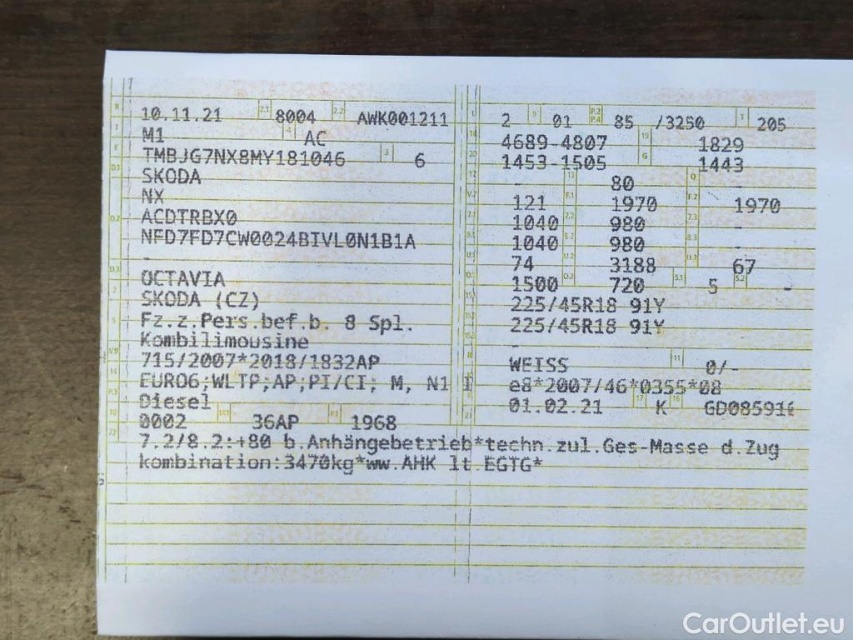 10.11.21 8004 AWK001211
M1 AC
TMBJG7NX8MY181046 6
SKODA
NX
ACDTRBX0
NFD7FD7CW0024BIVL0N1B1A
-
OCTAVIA
SKODA (CZ)
Fz.z.Pers.bef.b. 8 Spl.
Kombilimousine
715/2007*2018/1832AP
EURO6;WLTP;AP;PI/CI; M, N1 I
Diesel
0002 36AP 1968
2 01 85 /3250 205
4689-4807 1829
1453-1505 1443
- 80 -
121 1970 1970
1040 980 -
1040 980 -
74 3188 67
1500 720 5 -
225/45R18 91Y
225/45R18 91Y
WEISS 0/-
e8*2007/46*0355*08
01.02.21 K
7.2/8.2:+80 b.Anhängebetrieb*techn.zul.Ges-Masse d.Zug
kombination:3470kg*ww.AHK lt.EGTG*
CarOutlet.eu